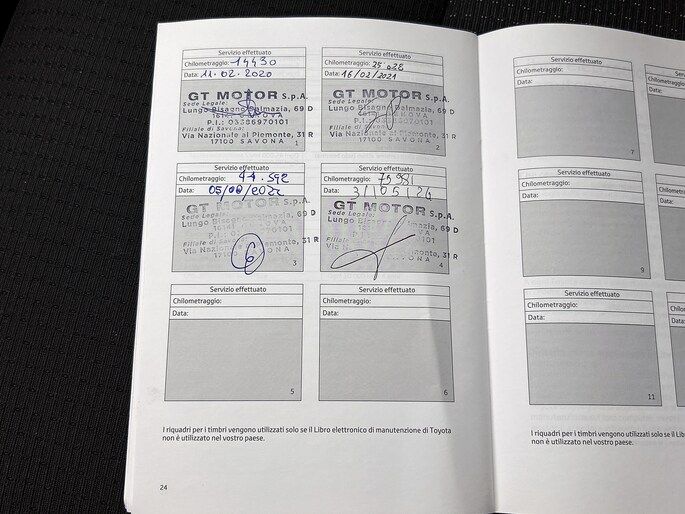 Servizio effettuato
Chilometraggio: 14430
Data: 11.02.2020
GT MOTOR S.p.A.
Sede Legale:
Lungo Bisagno Dalmazia, 69 D
P.I.: 03386970101
Filiale di Savona:
Via Nazionale al Piemonte, 31 R
17100 SAVONA
1
Servizio effettuato
Chilometraggio: 25
Data: 16/02/2021
GT MOTOR S.p.A.
Sede Legale:
Lungo Bisagno Dalmazia, 69 D
Filiale di Savona:
Via Nazionale al Piemonte, 31 R
17100 SAVONA
2
Servizio effettuato
Chilometraggio: 44.592
Data: 05/08/2022
GT MOTOR S.p.A.
Sede Legale:
69 D
Filiale di
Piemonte, 31 R
17100
3
Servizio effettuato
Chilometraggio:
Data: 31/05/24
GT MOTOR S.p.A.
Sede Legale:
69 D
Filiale di
31 R
4
Servizio effettuato
Chilometraggio:
Data:
5
Servizio effettuato
Chilometraggio:
Data:
6
I riquadri per i timbri vengono utilizzati solo se il Libro elettronico di manutenzione di Toyota
non è utilizzato nel vostro paese.
24
Servizio effettuato
Chilometraggio:
Data:
7
Chilometraggio:
Data:
Servizio effettuato
Chilometraggio:
Data:
9
Chilometraggio:
Data:
Servizio effettuato
Chilometraggio:
Data:
11
I riquadri per i timbri vengono utilizzati solo se il
non è utilizzato nel vostro paese.